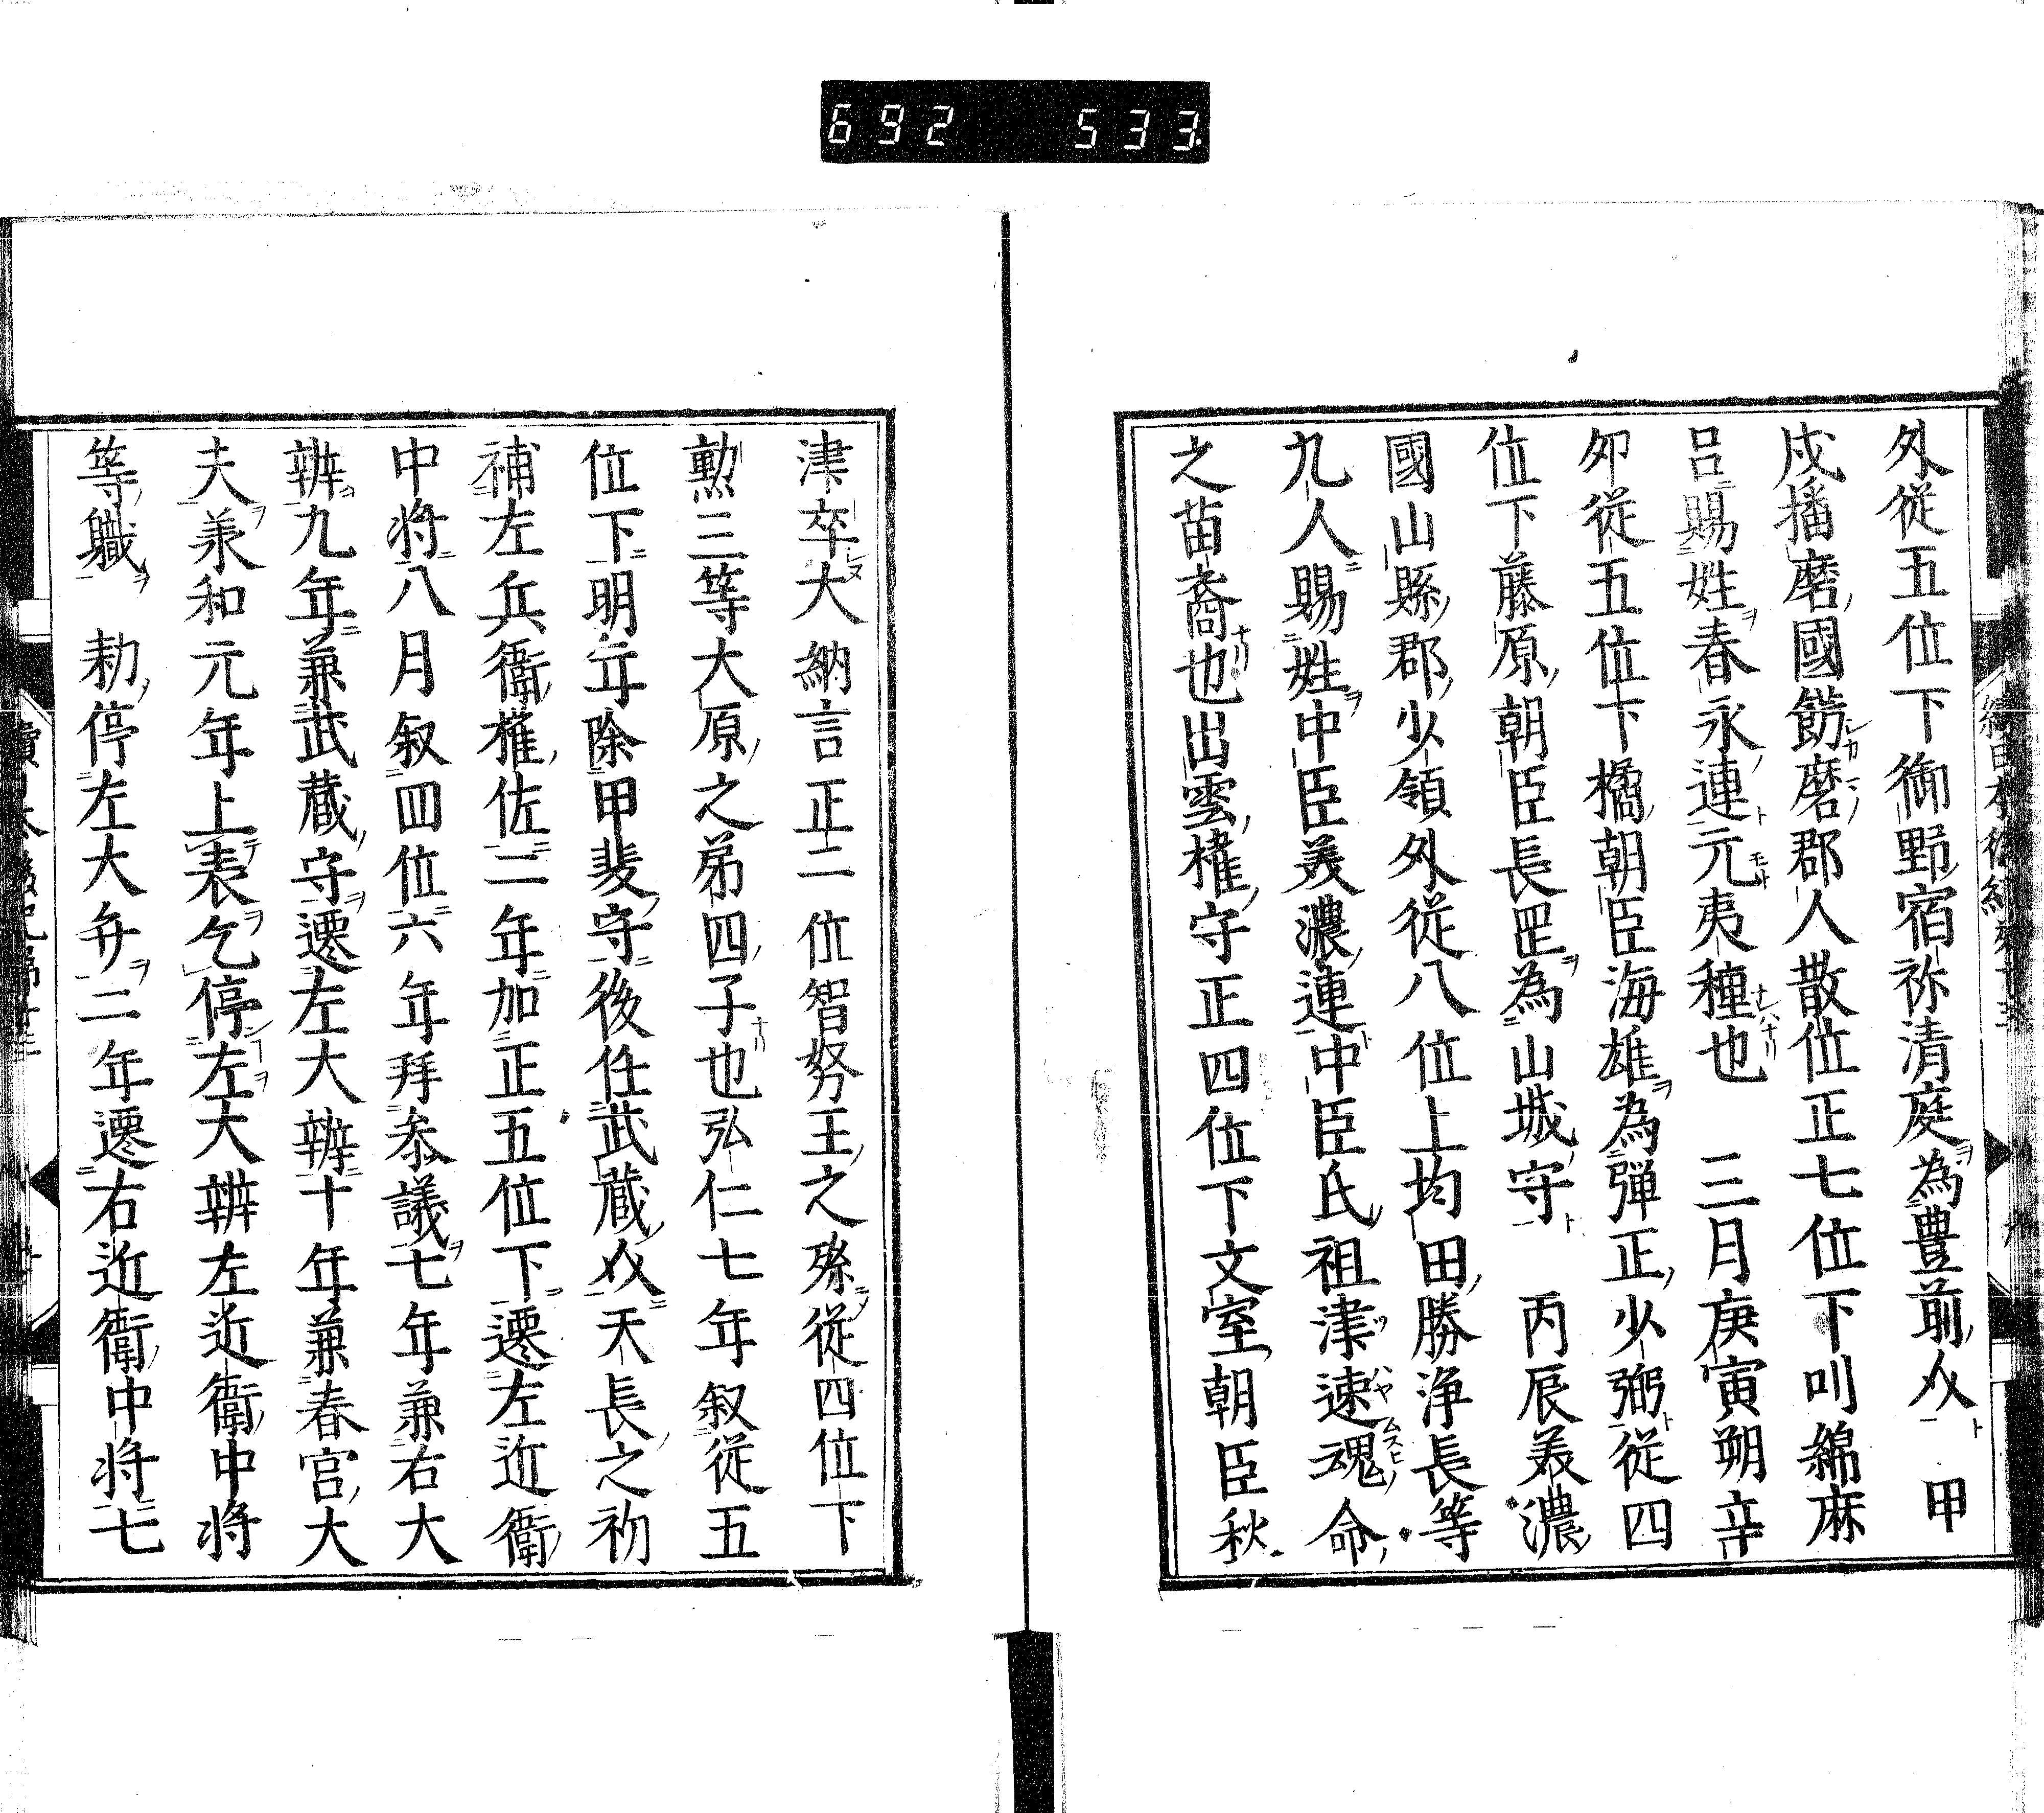 692 533
外従五位下御野宿祢清庭為豊前介 甲
戌播磨國餝磨郡人散位正七位下叫綿麻
呂賜姓春永連元夷種也 三月庚寅朔辛
夘従五位下橘朝臣海雄為弾正少弼従四
位下藤原朝臣長罡為山城守 丙辰美濃
國山縣郡少領外従八位上均田勝浄長等
九人賜姓中臣美濃連中臣氏祖津速魂命
之苗裔也出雲権守正四位下文室朝臣秋
津卒大納言正二位智努王之孫従四位下
勲三等大原之弟四子也弘仁七年叙従五
位下明年除甲斐守後任武蔵介天長之初
補左兵衛権佐二年加正五位下遷左近衛
中将八月叙四位六年拜参議七年兼右大
辨九年兼武蔵守遷左大辨十年兼春宮大
夫兼和元年上表乞停左大辨左近衛中将
等職 勅停左大弁二年遷右近衛中将七